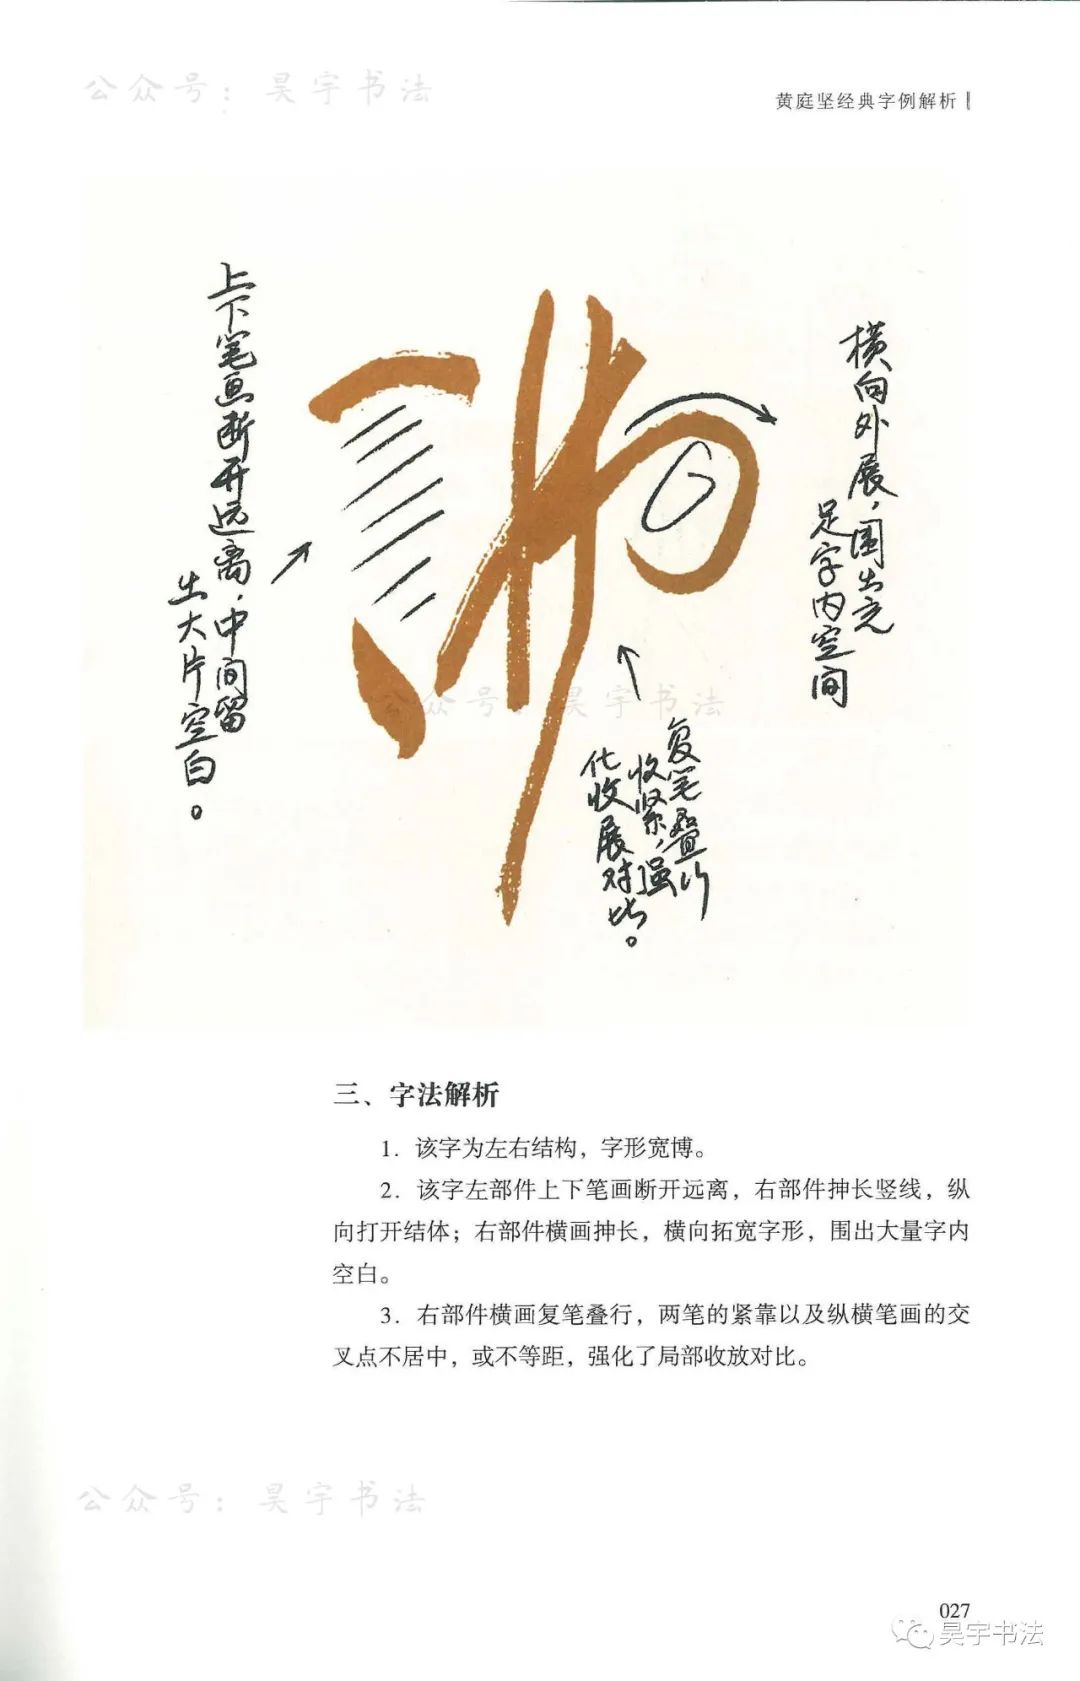 公众号：昊宇书法
黄庭坚经典字例解析
上下笔画断开远离，中间留
出大片空白。
横向外展，围出充
足字内空间
复笔叠行
收紧，强
化收展对比。
公众号：昊宇书法
三、字法解析
1．该字为左右结构，字形宽博。
2．该字左部件上下笔画断开远离，右部件抻长竖线，纵
向打开结体；右部件横画抻长，横向拓宽字形，围出大量字内
空白。
3．右部件横画复笔叠行，两笔的紧靠以及纵横笔画的交
叉点不居中，或不等距，强化了局部收放对比。
公众号：昊宇书法
027
昊宇书法